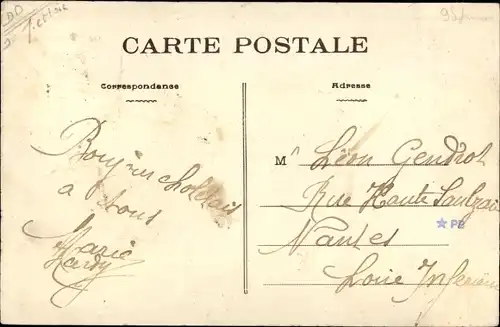 CARTE POSTALE
Correspondance
Adresse
Bonjour Choletais
à tous
Marie
Hardy
Mr Léon Gendrot
Rue Haute Saulzaie
Nantes
Loire Inférieure
PB